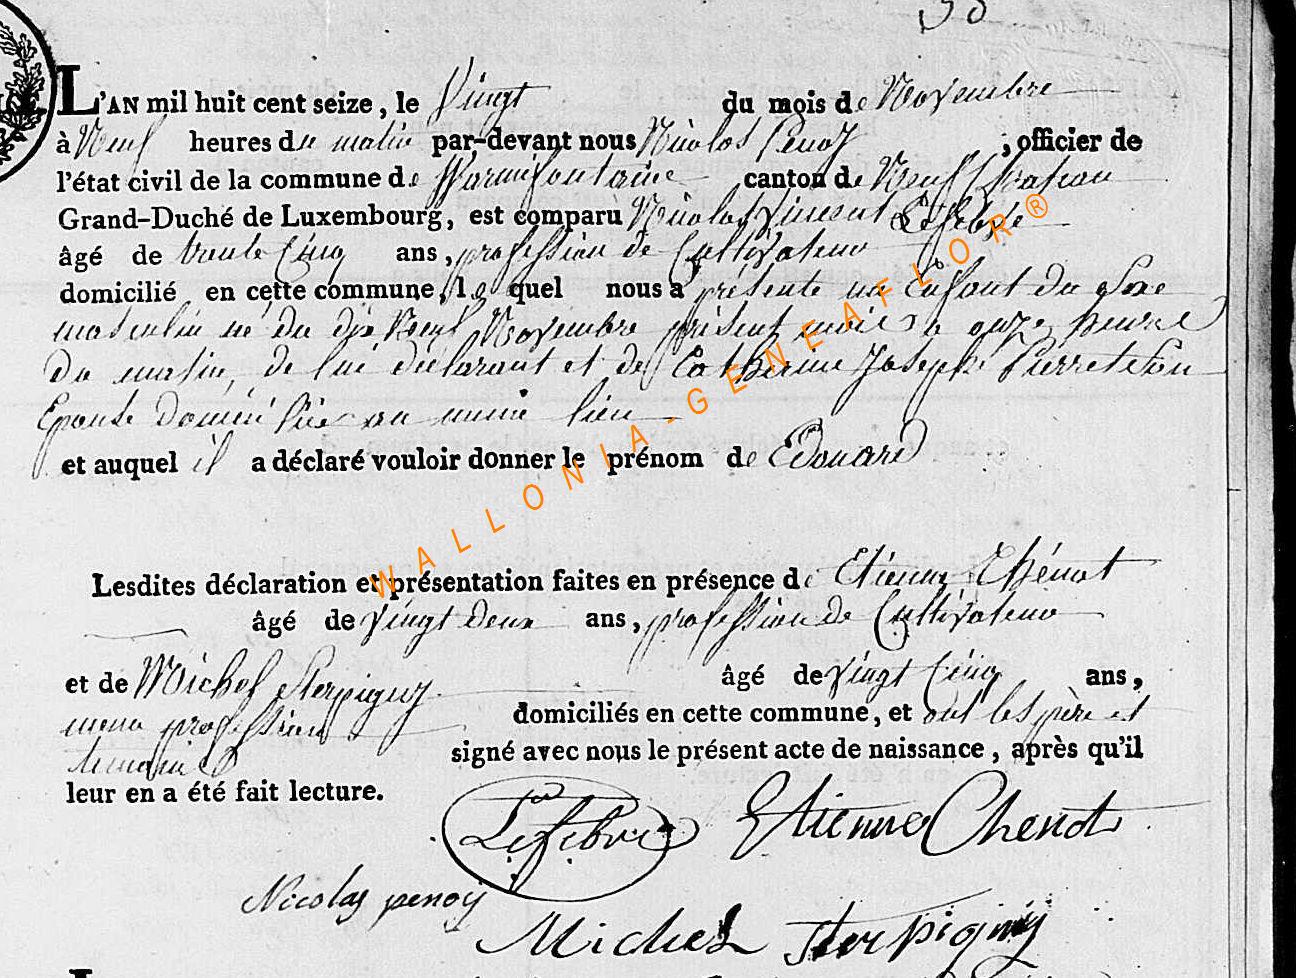 38
L'AN mil huit cent seize, le Vingt du mois de Novembre
à Neuf heures du matin par-devant nous Nicolas Penoy, officier de
l'état civil de la commune de Warmifontaine canton de Neuf Chateau
Grand-Duché de Luxembourg, est comparu Nicolas Vincent Lefebvre
âgé de trente Cinq ans, profession de Cultivateur
domicilié en cette commune, le quel nous a présenté un Enfant du Sexe
masculin né du dix Neuf Novembre présent mois a onze heures
Du matin, de lui déclarant et de Catherine Joseph Pierret Son
Epouse Domiciliée au même lieu
et auquel il a déclaré vouloir donner le prénom de Edouard
Lesdites déclaration et présentation faites en présence de Etienne Chénot
âgé de Vingt deux ans, profession de Cultivateur
et de Michel Sterpigny âgé de Vingt Cinq ans,
meme profession domiciliés en cette commune, et ont les père et
témoins signé avec nous le présent acte de naissance, après qu'il
leur en a été fait lecture.
Lefebvre Etienne Chenot
Nicolas penoy
Michel Sterpigny
WALLONIA-GENEAFLOR®